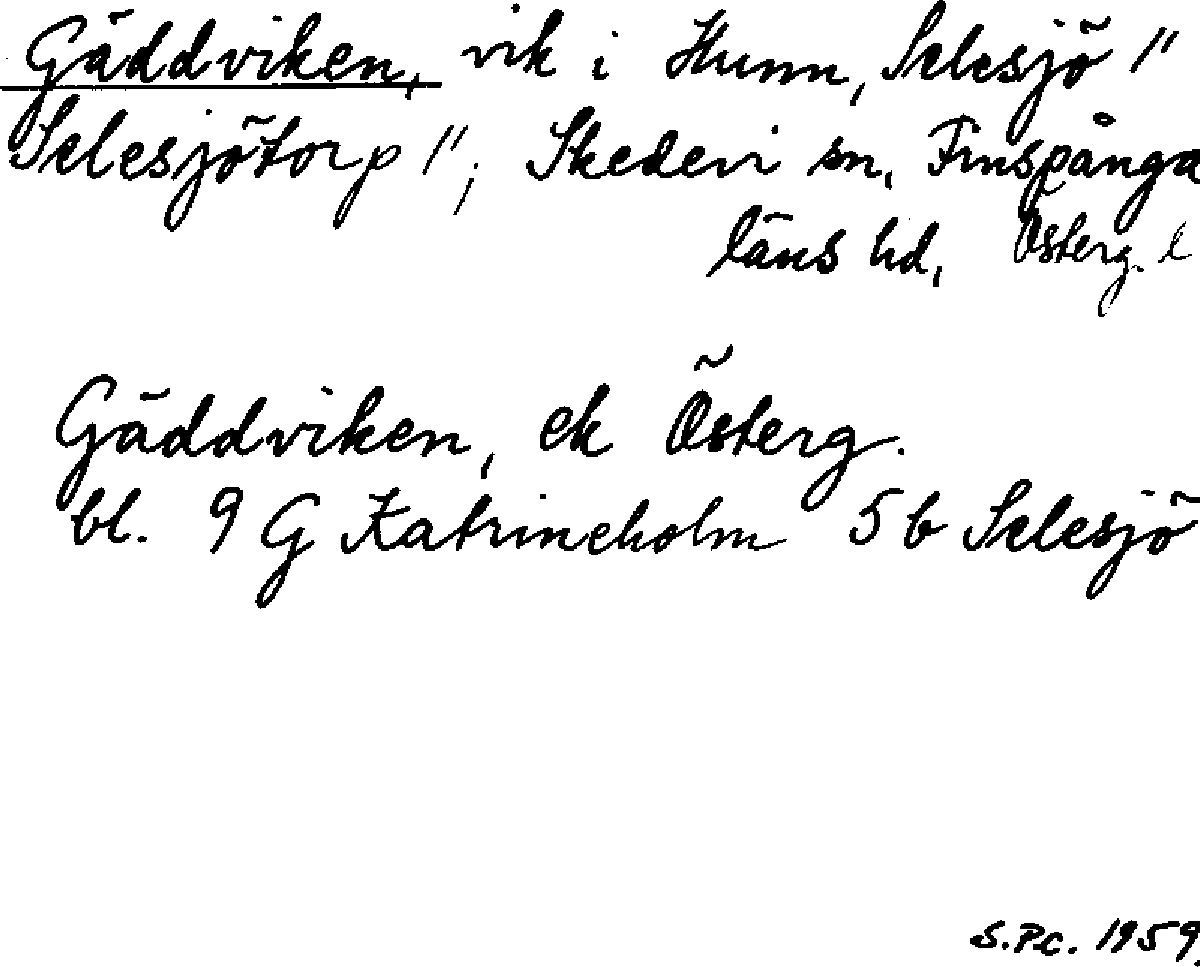 Gäddviken, vik i Hunn, Selesjö 1/1
Selesjötorp 1/1; Skedevi sn, Finspånga
läns hd, Österg. l
Gäddviken, ek Österg.
bl. 9 G Katrineholm 5 b Selesjö
S.P.C. 1959.